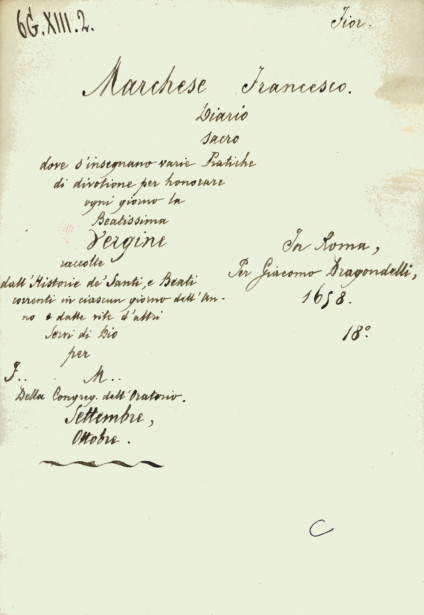 6G.XIII.2.
Fior.
Marchese Francesco.
Diario
sacro
dove s'insegnano varie Pratiche
di divotione per honorare
ogni giorno la
Beatissima
Vergine
raccolte
dall'Historie de' Santi, e Beati
correnti in ciascun giorno dell'An-
no e dalle vite d'altri
Servi di Dio
per
F.. M..
Della Congreg. dell'Oratorio.
Settembre,
Ottobre.
In Roma,
Per Giacomo Dragondelli,
1658.
18°
C